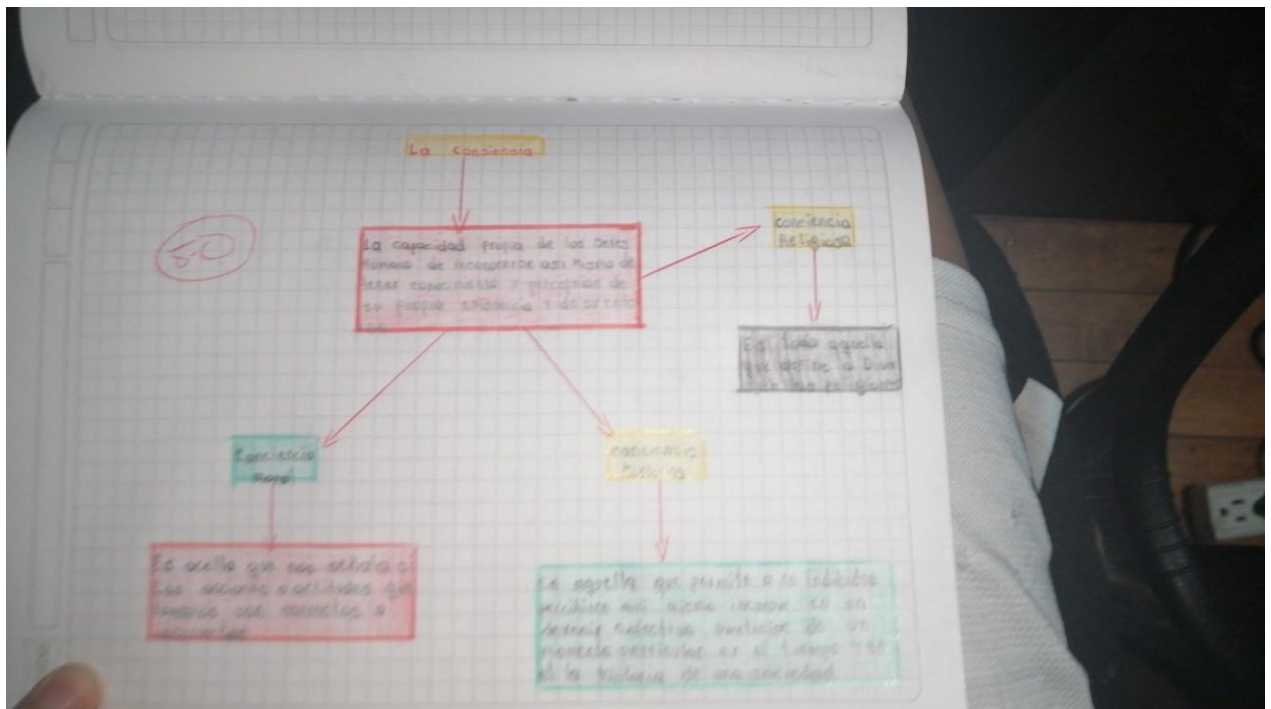 La conciencia
5-0
La capacidad propia de los seres
Humano de reconocerse asi mismo de
tener conocimiento y percepcion de
su propia existencia y de su ento
conciencia
Religiosa
Es todo aquella
que define a Dios
Conciencia
Moral
conciencia
historica
Es aella que nos señala si
las acciones o actitudes que
tomamos son correctas o
incorrectas
Es aquella que permite a un individuo
asi mismo inmerso en un
colectivo de un
momento particular en el tiempo y en
la historia de una sociedad